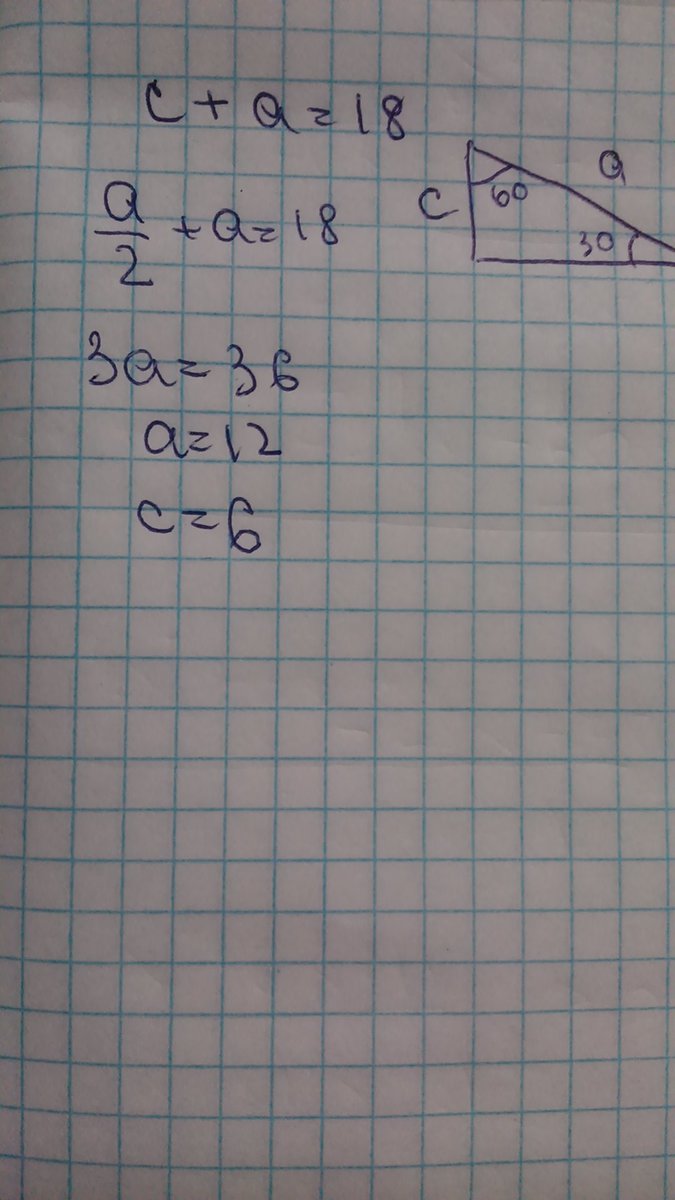 c + a = 18
a/2 + a = 18
3a = 36
a = 12
c = 6
c
60
a
30